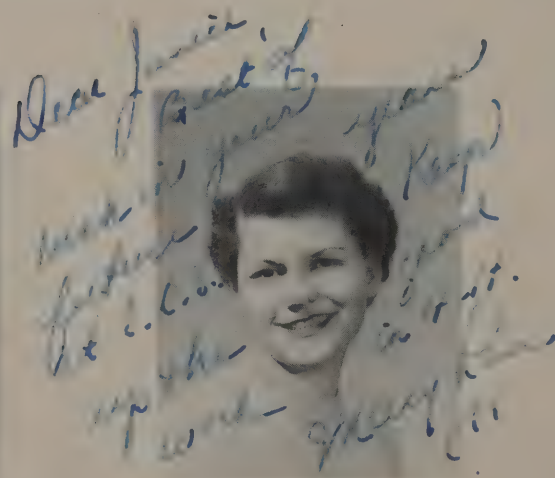 Dear
Best of
luck in your
future
at C.C.U. Keep
up the good
work in art.
Mary